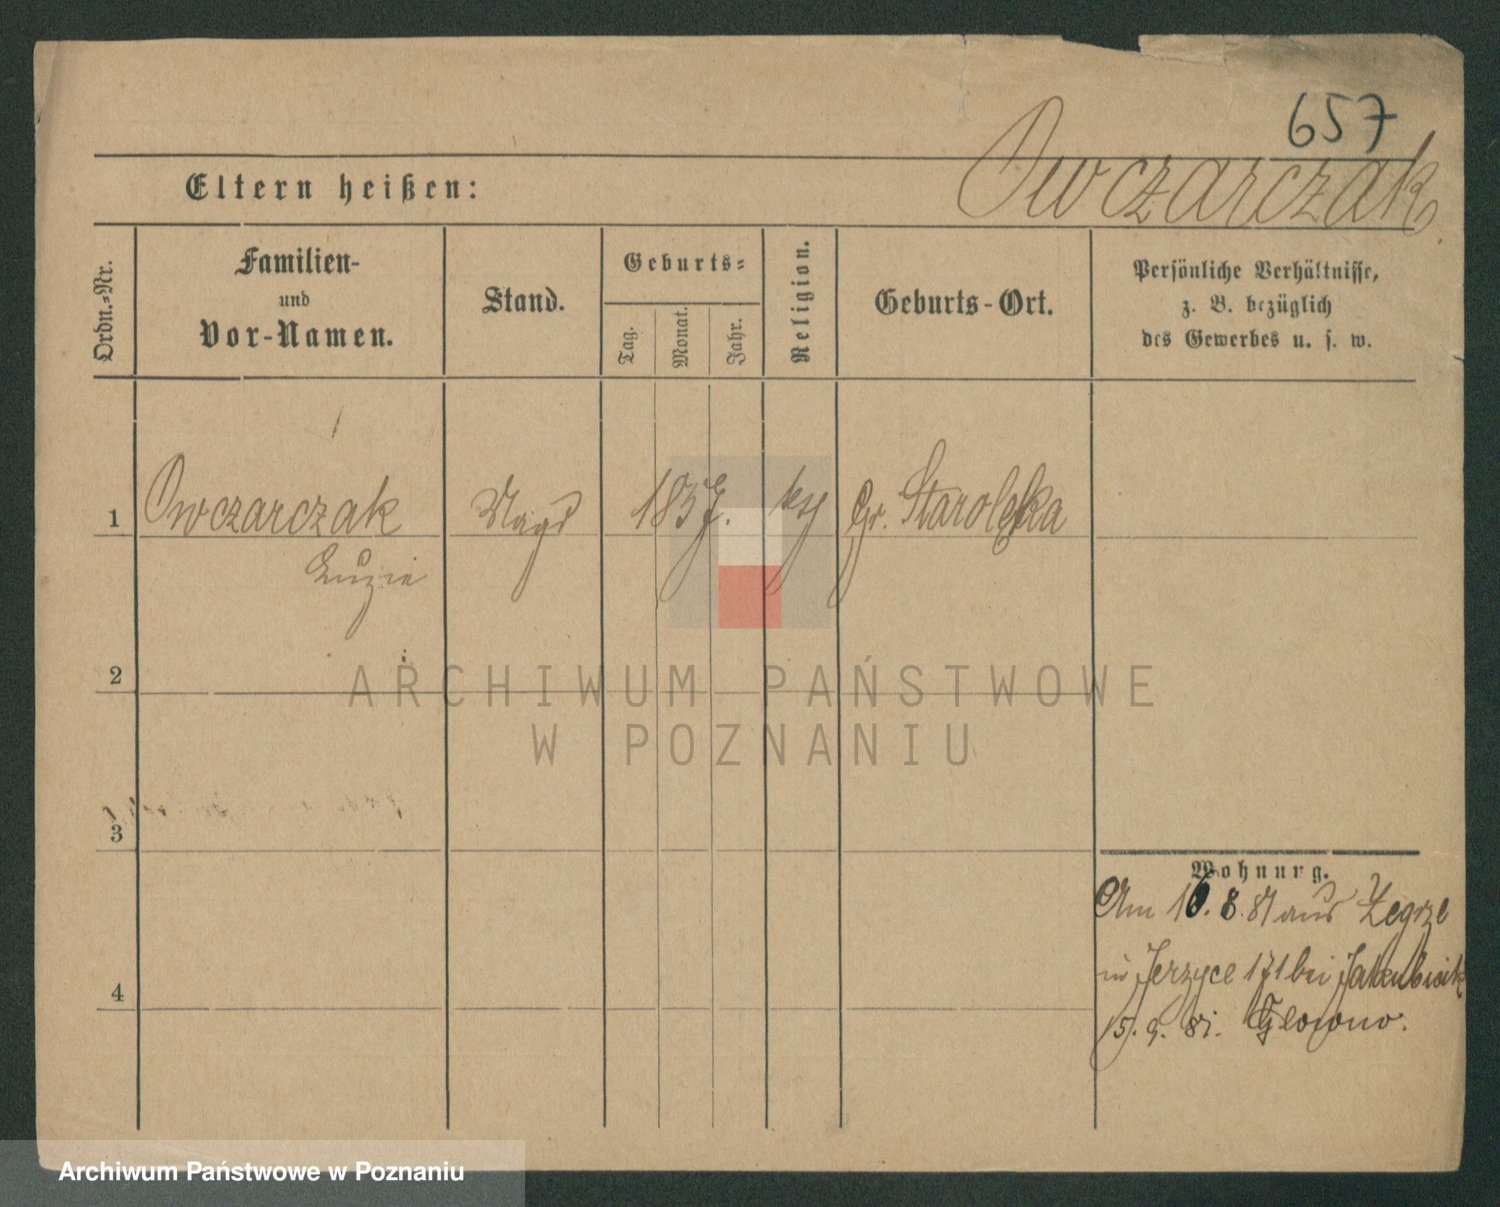 657
Owczarczak
Eltern heißen:
Ordn.-Nr.
Familien-
und
Vor-Namen.
Stand.
Geburts-
Tag.
Monat.
Jahr.
Religion.
Geburts-Ort.
Persönliche Verhältnisse,
z. B. bezüglich
des Gewerbes u. s. w.
1 Owczarczak Magd 1857. Gr. Starolęka
Luzie
2
ARCHIWUM PAŃSTWOWE
W POZNANIU
3
4
Wohnung.
Am 16. 8. 81 aus Zegrze
in Jerzyce 171 bei
15. 9. 81.
Archiwum Państwowe w Poznaniu